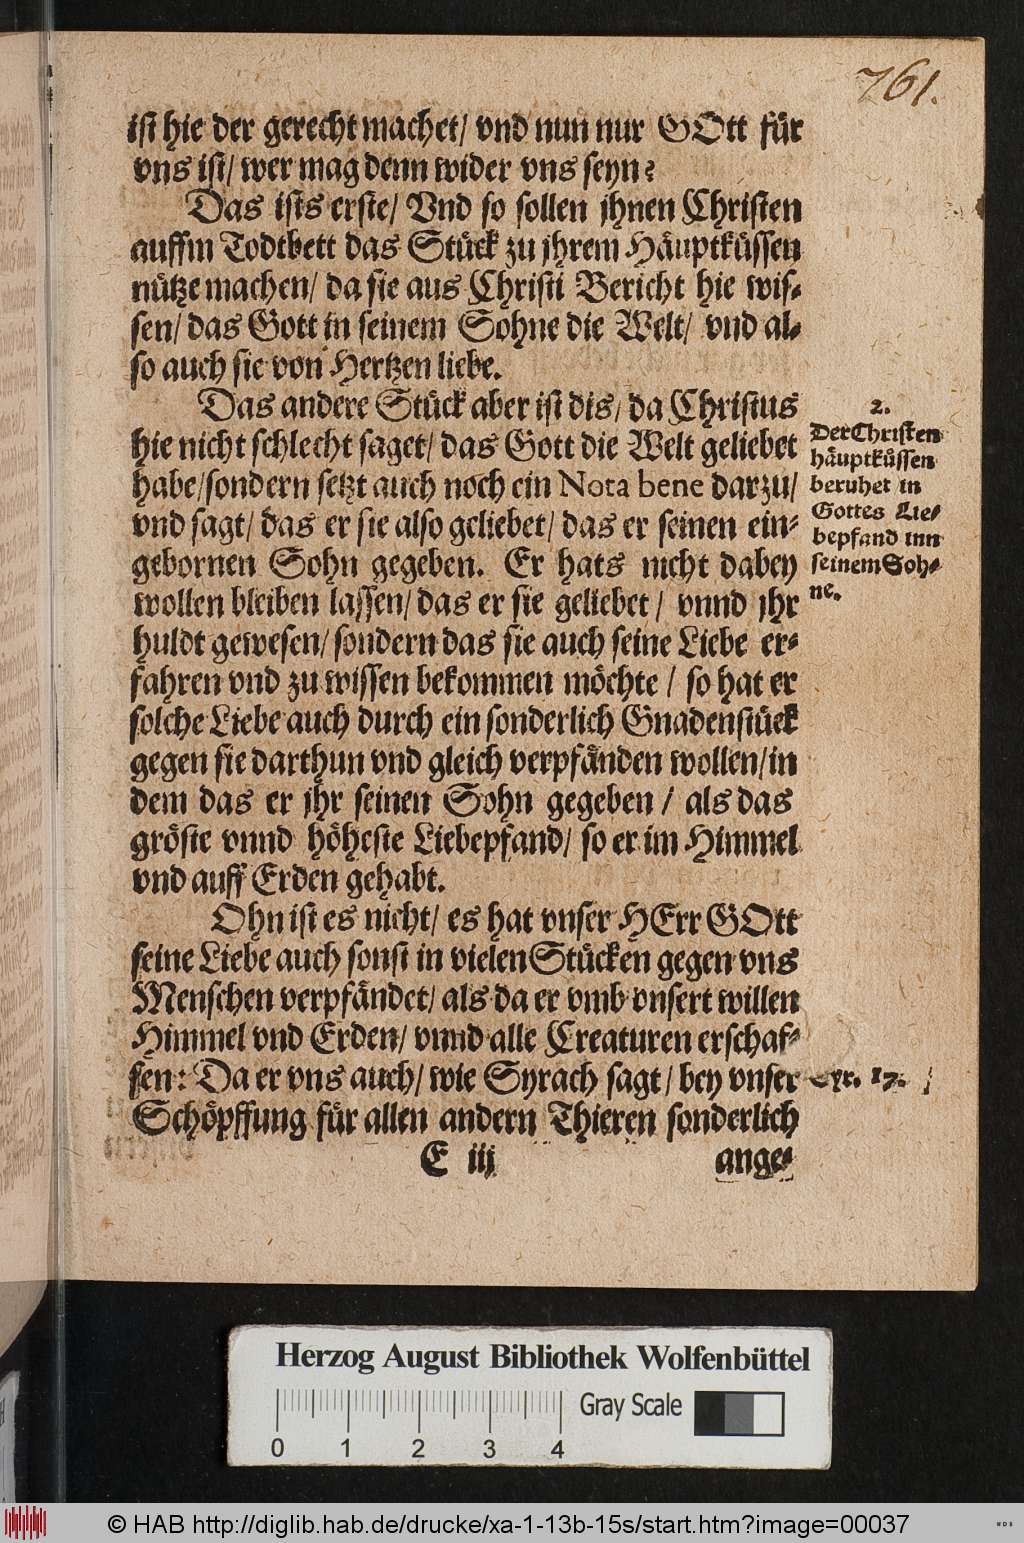 761.
ist hie der gerecht machet/ vnd nun nur GOtt für
vns ist/ wer mag denn wider vns seyn?
Das ists erste/ Vnd so sollen jhnen Christen
auffm Todtbett das Stück zu jhrem Häuptküssen
nütze machen/ da sie aus Christi Bericht hie wis-
sen/ das Gott in seinem Sohne die Welt/ vnd al-
so auch sie von Hertzen liebe.
Das andere Stück aber ist dis/ da Christus
hie nicht schlecht saget/ das Gott die Welt geliebet
habe/ sondern setzt auch noch ein Nota bene darzu/
vnd sagt/ das er sie also geliebet/ das er seinen ein-
gebornen Sohn gegeben. Er hats nicht dabey
wollen bleiben lassen/ das er sie geliebet/ vnnd jhr
huldt gewesen/ sondern das sie auch seine Liebe er-
fahren vnd zu wissen bekommen möchte/ so hat er
solche Liebe auch durch ein sonderlich Gnadenstück
gegen sie darthun vnd gleich verpfänden wollen/ in
dem das er jhr seinen Sohn gegeben/ als das
gröste vnnd höheste Liebepfand/ so er im Himmel
vnd auff Erden gehabt.
Ohn ist es nicht/ es hat vnser HErr GOtt
seine Liebe auch sonst in vielen Stücken gegen vns
Menschen verpfändet/ als da er vmb vnsert willen
Himmel vnd Erden/ vnnd alle Creaturen erschaf-
fen: Da er vns auch/ wie Syrach sagt/ bey vnser
Schöpffung für allen andern Thieren sonderlich
E iij
ange-
2.
Der Christen
häuptküssen
beruhet in
Gottes Lie-
bepfand inn
seinem Soh-
ne.
Syr. 17.
Herzog August Bibliothek Wolfenbüttel
Gray Scale
0 1 2 3 4
© HAB http://diglib.hab.de/drucke/xa-1-13b-15s/start.htm?image=00037